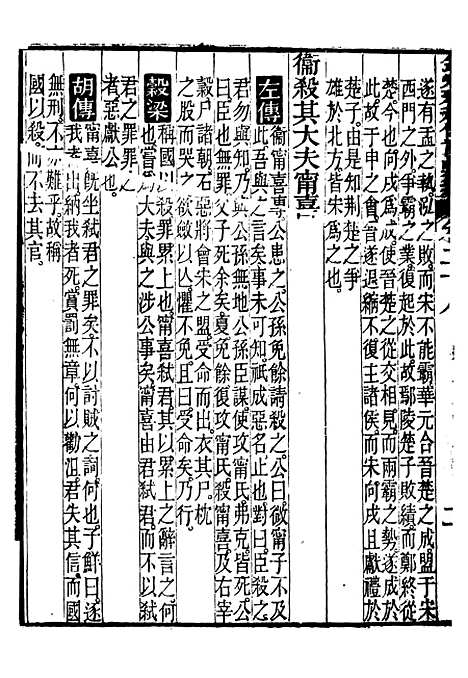 遂有盂之執泓之敗而宋不能霸華元合晉楚之成盟于宋
西門之外爭霸之業復起此故鄢陵楚子敗績而鄭終從
楚今也向戌為成使晉楚之從交相見而兩霸之勢遂成於
此故于申之會晉遂退縮不復主諸侯而宋向戌且獻禮於
楚子由是知荆楚之爭
雄於北方皆宋為之也
衞殺其大夫甯喜
左傳 衞甯喜專公患之公孫免餘請殺之公曰微甯子不及
此吾與之言矣事未可祗成惡名止也對曰臣殺之
君勿與知乃與公孫無地公孫臣謀使攻甯氏弗克皆死公
曰臣也無罪父子死余矣夏免餘復攻甯氏殺甯喜及右宰
穀尸諸朝石惡將會宋之盟受命而出衣其尸枕
之股而哭之欲斂以亡懼不免且曰受命矣乃行
穀梁 稱國以 罪累上也甯喜弑君其以累上之辭言之何
也嘗 大夫與之涉公事矣甯喜由君弑君而不以弑
君之罪罪
者惡獻公也
胡傳 甯喜旣坐弑君之罪矣不以討賊之詞何也子鮮曰逐
我者出納我者死賞罰無章何以勸沮君失其信而國
無刑不 難乎故稱
國以殺而不去其官